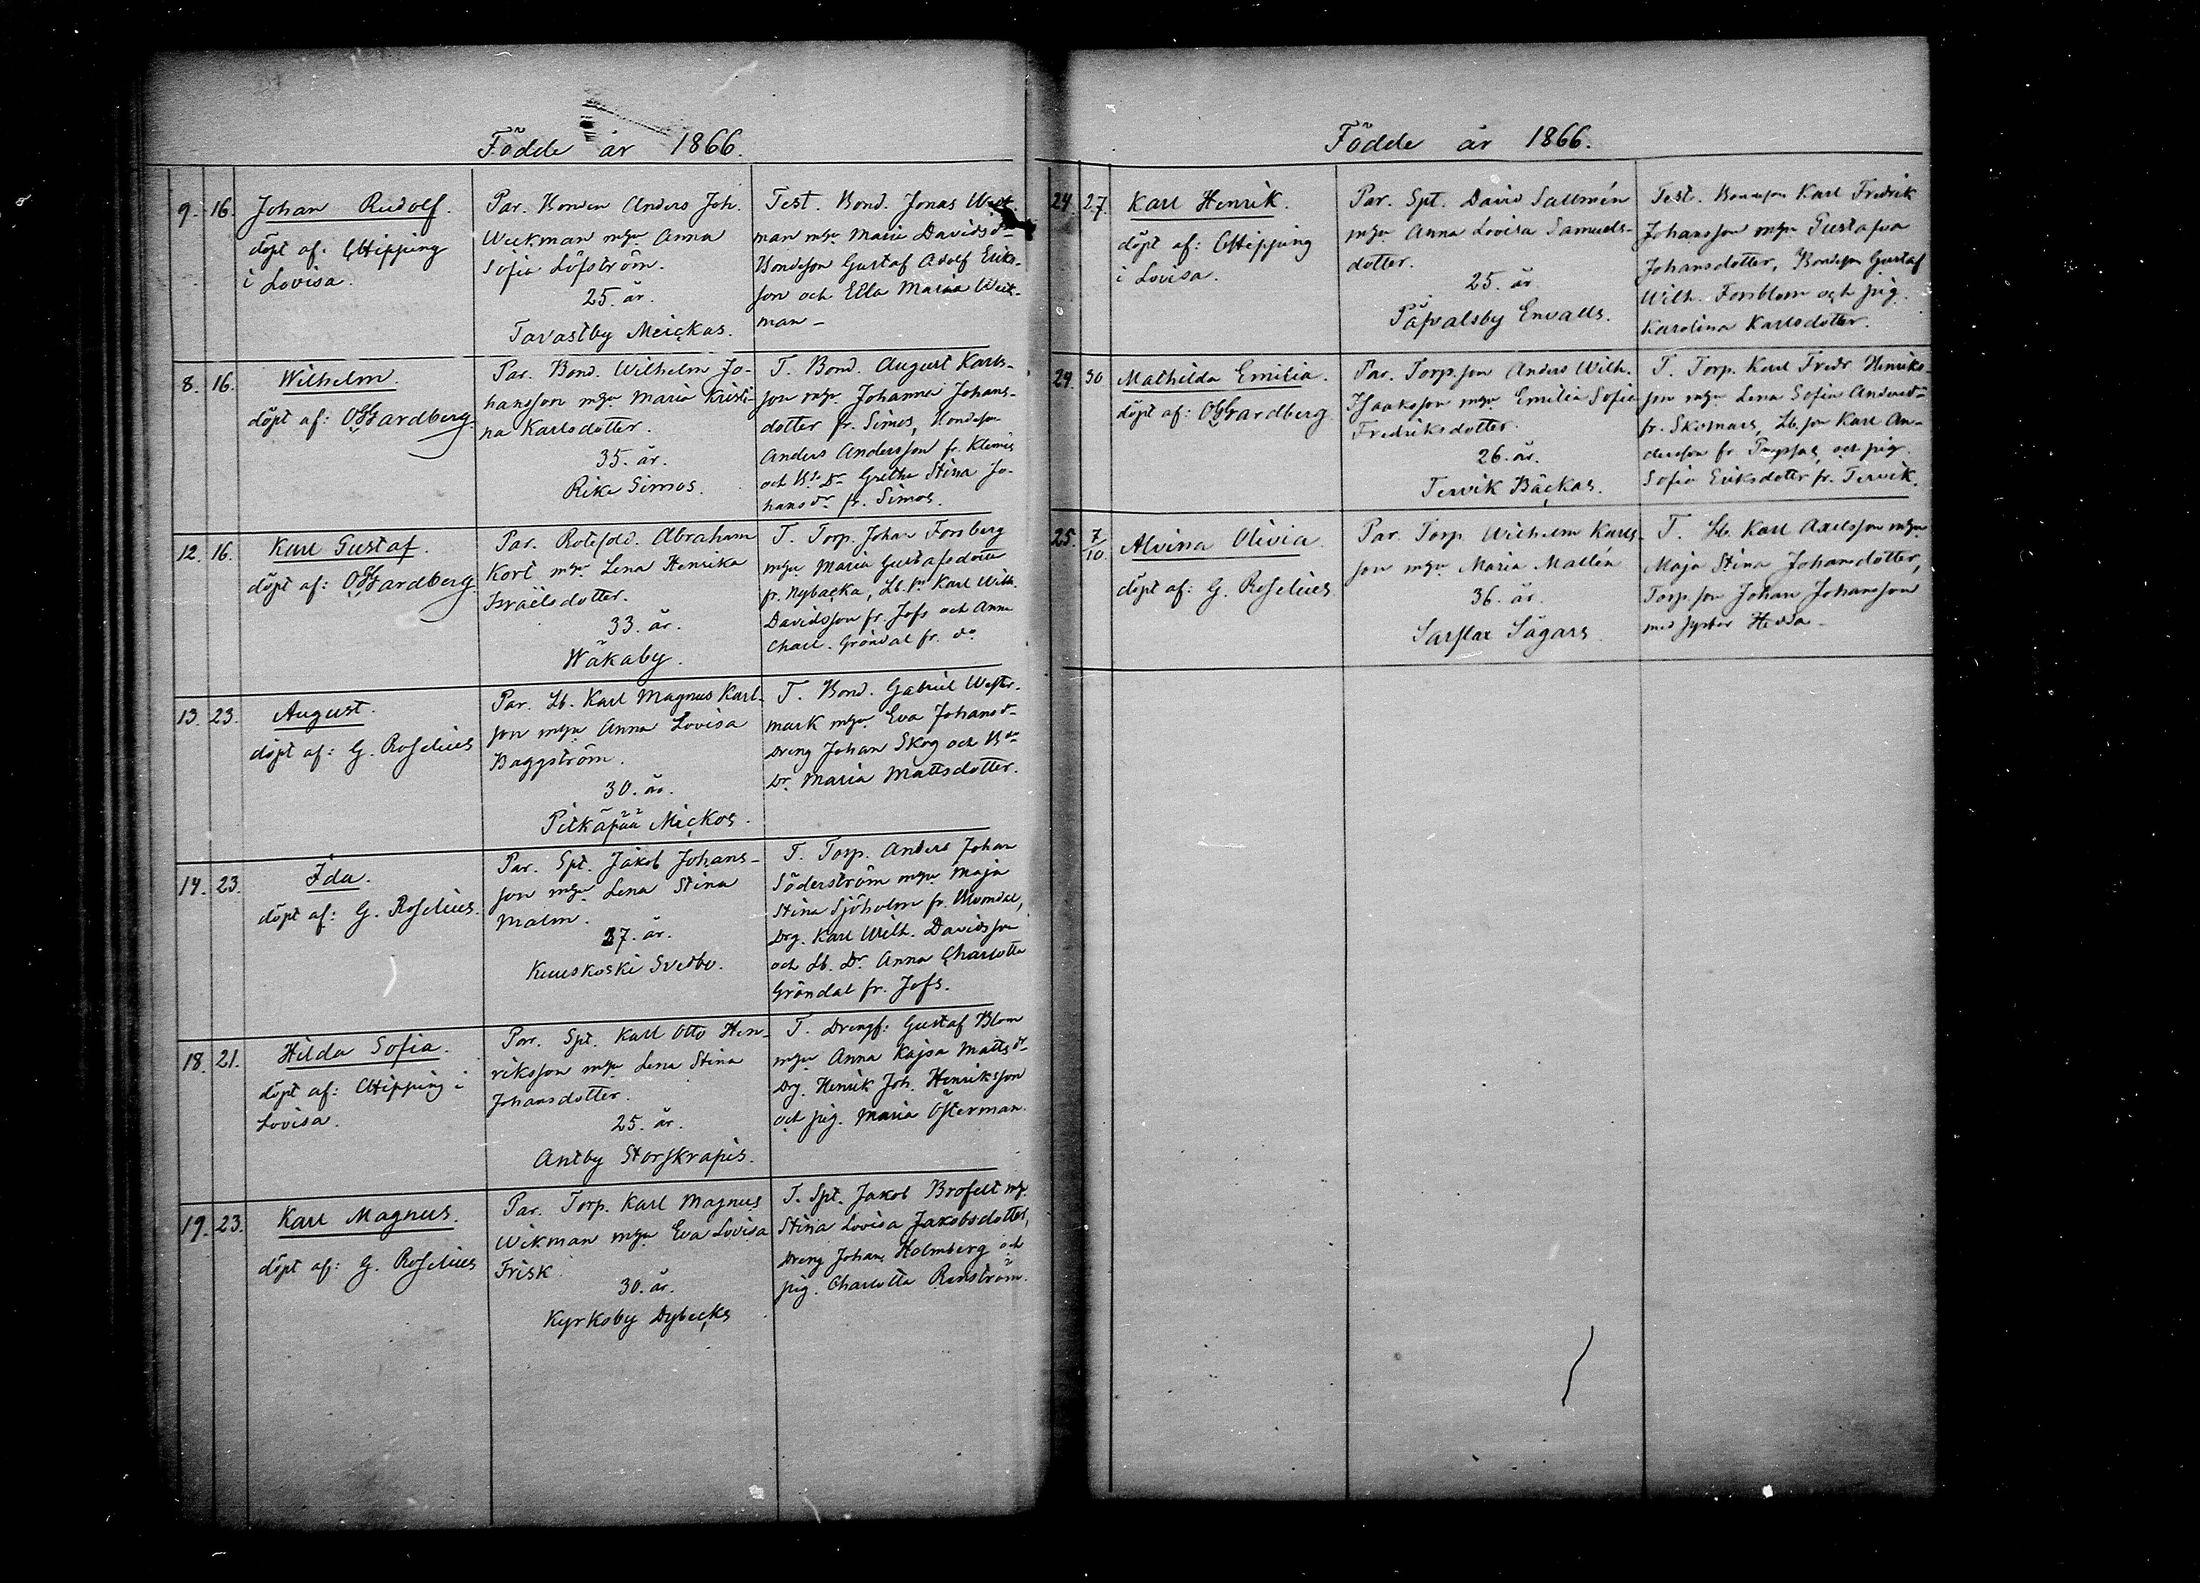 Födde år 1866.
9. 16. Johan Rudolf.
döpt af: CHipping
i Lovisa.
Par. Bonden Anders Joh.
Weckman m. hu. Anna
Sofia Löfström.
25. år.
Tavastby Meickas.
Test. Bond. Jonas
man m. hu. Maria Davidsdr
Bondeson Gustaf Adolf Eriks-
son och Ella Maria Weck-
man
8. 16. Wilhelm.
döpt af: OGGardberg
Par. Bond. Wilhelm Jo-
hansson m. hu. Maria Kristi-
na Karlsdotter.
35. år.
Rike Simos.
T. Bond. August Karls-
son m. hu. Johanna Johans-
dotter fr. Simos, Bondeson
Anders Andersson fr. Klemis
och Bde Dr Gretha Stina Jo-
hansdr fr. Simos.
12. 16. Karl Gustaf.
döpt af: OGGardberg
Par. Rotesold. Abraham
Kort m. hu. Lena Henrika
Israëlsdotter.
33. år.
Wåkaby.
T. Torp. Johan Forsberg
m. hu. Maria Gustafsdotter
fr. Nybacka, Lb. sn Karl Wilh.
Davidsson fr. Jofs och Anna
Charl. Gröndal fr. do
13. 23. August.
döpt af: G. Roselius
Par. Lb. Karl Magnus Karl-
son m. hu. Anna Lovisa
Baggström.
30. år.
Pitkäpää Mickos.
T. Bond. Gabriel Wester-
mark m. hu. Eva Johansdr
Dreng Johan Skog och Bde
Dr. Maria Mattsdotter.
14. 23. Ida.
döpt af: G. Roselius.
Par. Spt. Jakob Johans-
son m. hu. Lena Stina
Malm.
37. år.
Kuuskoski Svedbo.
T. Torp. Anders Johan
Söderström m. hu. Maja
Stina Sjöholm fr.
Drg. Karl Wilh. Davidsson
och Lb. Dr Anna Charlotta
Gröndal fr. Jofs.
18. 21. Hilda Sofia.
döpt af: CHipping i
Lovisa.
Par. Spt. Karl Otto Hen-
riksson m. hu. Lena Stina
Johansdotter.
25. år.
Antby Storskrapis.
T. Drengf: Gustaf Blom
m. hu. Anna Kajsa Mattsdr
Drg. Henrik Joh. Henriksson
och pig. Maria Österman.
19. 23. Karl Magnus.
döpt af: G. Roselius
Par. Torp. Karl Magnus
Wikman m. hu. Eva Lovisa
Frisk.
30. år.
Kyrkoby Dybecks
T. Spt. Jakob Brofelt m. hu.
Stina Lovisa Jakobsdotter,
Dreng Johan Holmberg och
pig. Charlotta Renström.
Födde år 1866.
24. 27. Karl Henrik.
döpt af: CHipping
i Lovisa.
Par. Spt. David Sallmén
m. hu. Anna Lovisa Samuels-
dotter.
25. år
Påvalsby Envalls.
Test. Bondeson Karl Fredrik
Johansson m. hu. Gustafva
Johansdotter, Bondeson Gustaf
Wilh. Forsblom och pig.
Karolina Karlsdotter.
24. 30 Mathilda Emilia.
döpt af: OGGardberg
Par. Torp. son Anders Wilh.
Isaaksson m. hu. Emilia Sofia
Fredriksdotter.
26. år.
Tervik Bäckas.
T. Torp. Karl Fredr Henriks-
son m. hu. Lena Sofia Andersdr
fr. Skomars, Lb. son Karl An-
dersson fr. och pig.
Sofia Eriksdotter fr. Tervik.
25. 7/10 Alvina Olivia
döpt af: G. Roselius
Par. Torp. Wilhelm Karls-
son m. hu. Maria Mallén
36. år.
Sarflax Sågars.
T. Lb. Karl Axelsson m. hu.
Maja Stina Johansdotter,
Torp. son Johan Johansson
med syster Hedda